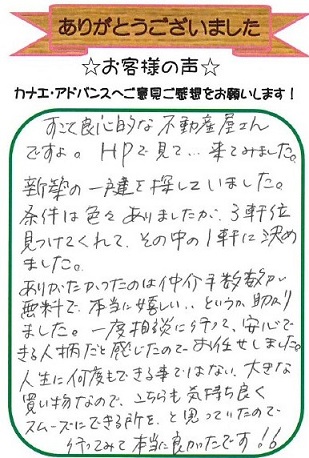 ありがとうございました
☆お客様の声☆
カナエ・アドバンスへご意見ご感想をお願いします！
すごく良心的な不動産屋さん
ですよ。HPで見て… 来てみました。
新築の一戸建を探していました。
条件は色々ありましたが、3軒位
見つけてくれて、その中の1軒に決め
ました。
ありがたかったのは仲介手数料が
無料で、本当に嬉しい、、というか、助かり
ました。一度相談に行って、安心で
きる人柄だと感じたので お任せしました。
人生に何度もできる事ではない、大きな
買い物なので、こちらも気持ち良く
スムーズにできる所を、と思っていたので
行ってみて 本当に良かったです!!